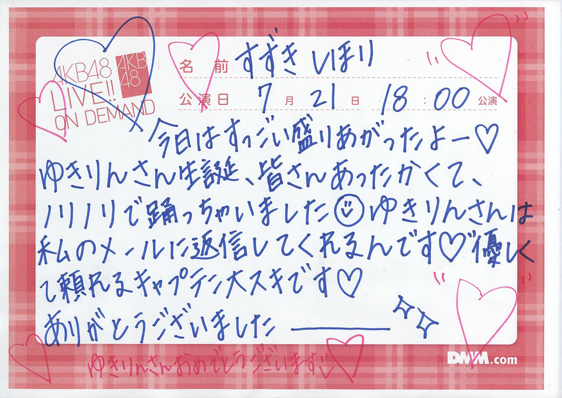 AKB48
LIVE!!
ON DEMAND
AKB
48
名前 すずき しほり
公演日 7月21日 18:00公演
今日はすっごい盛りあがったよー♡
ゆきりんさん生誕、皆さんあったかくて、
ノリノリで踊っちゃいました☺ゆきりんさんは
私のメールに返信してくれるんです♡優しく
て頼れるキャプテン大スキです♡
ありがとうございました
ゆきりんさんおめでとうございます♡
DMM.com